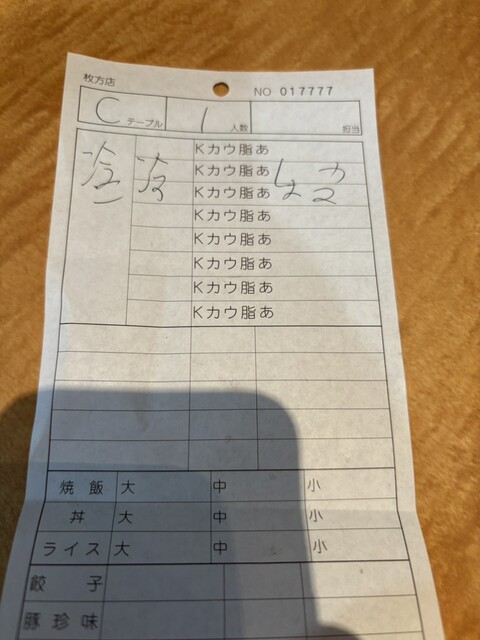 枚方店
NO 017777
C テーブル 1 人数 担当
Kカウ脂あ
Kカウ脂あ
Kカウ脂あ
Kカウ脂あ
Kカウ脂あ
Kカウ脂あ
Kカウ脂あ
Kカウ脂あ
焼飯 大 中 小
丼 大 中 小
ライス 大 中 小
餃子
豚珍味